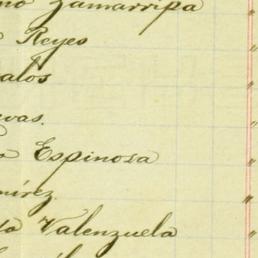 no Zamarripa
Reyes
alos
vas.
a Espinosa
mírez.
Valenzuela